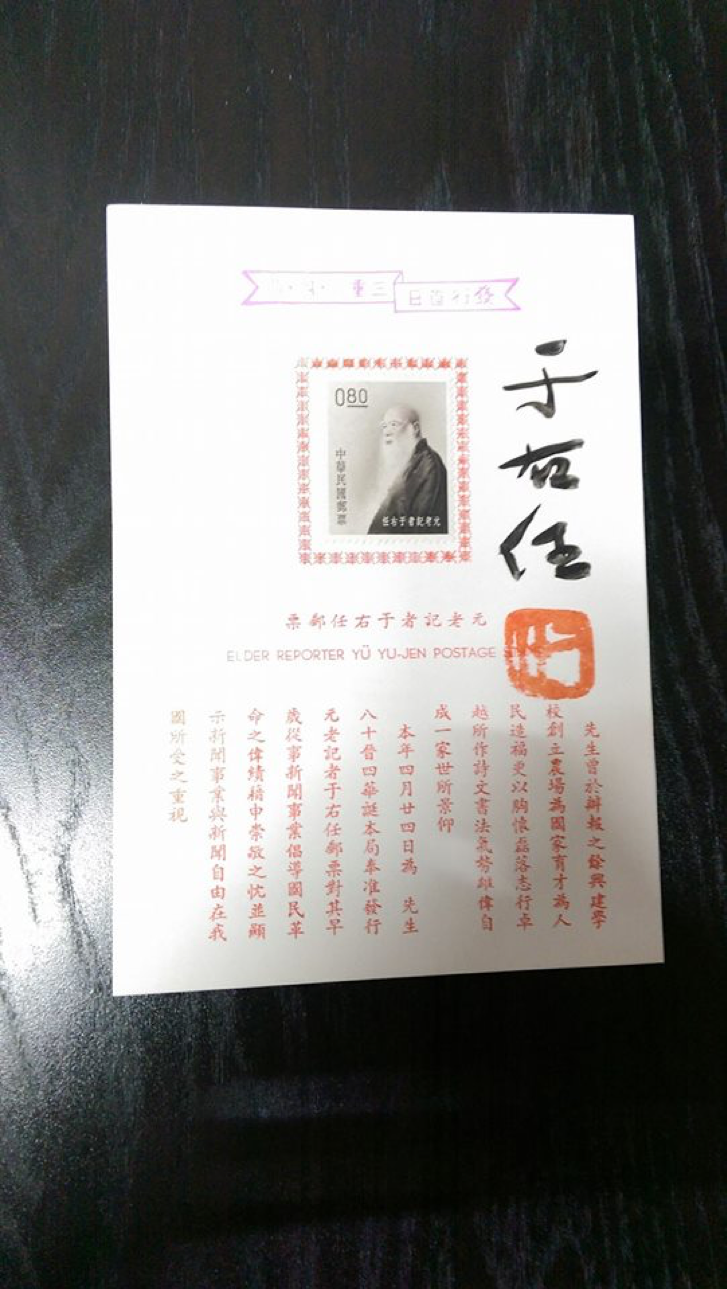 發行首日
三重
080
中華民國郵票
元老記者于右任
于右任
元老記者于右任郵票
ELDER REPORTER YÜ YU-JEN POSTAGE
先生曾於辦報之餘興建學
校創立農場為國家育才為人
民造福更以胸懷磊落志行卓
越所作詩文書法氣勢雄偉自
成一家世所景仰
本年四月廿四日為 先生
八十晉四華誕本局奉准發行
元老記者于右任郵票對其早
歲從事新聞事業倡導國民革
命之偉績藉申崇敬之忱並顯
示新聞事業與新聞自由在我
國所受之重視